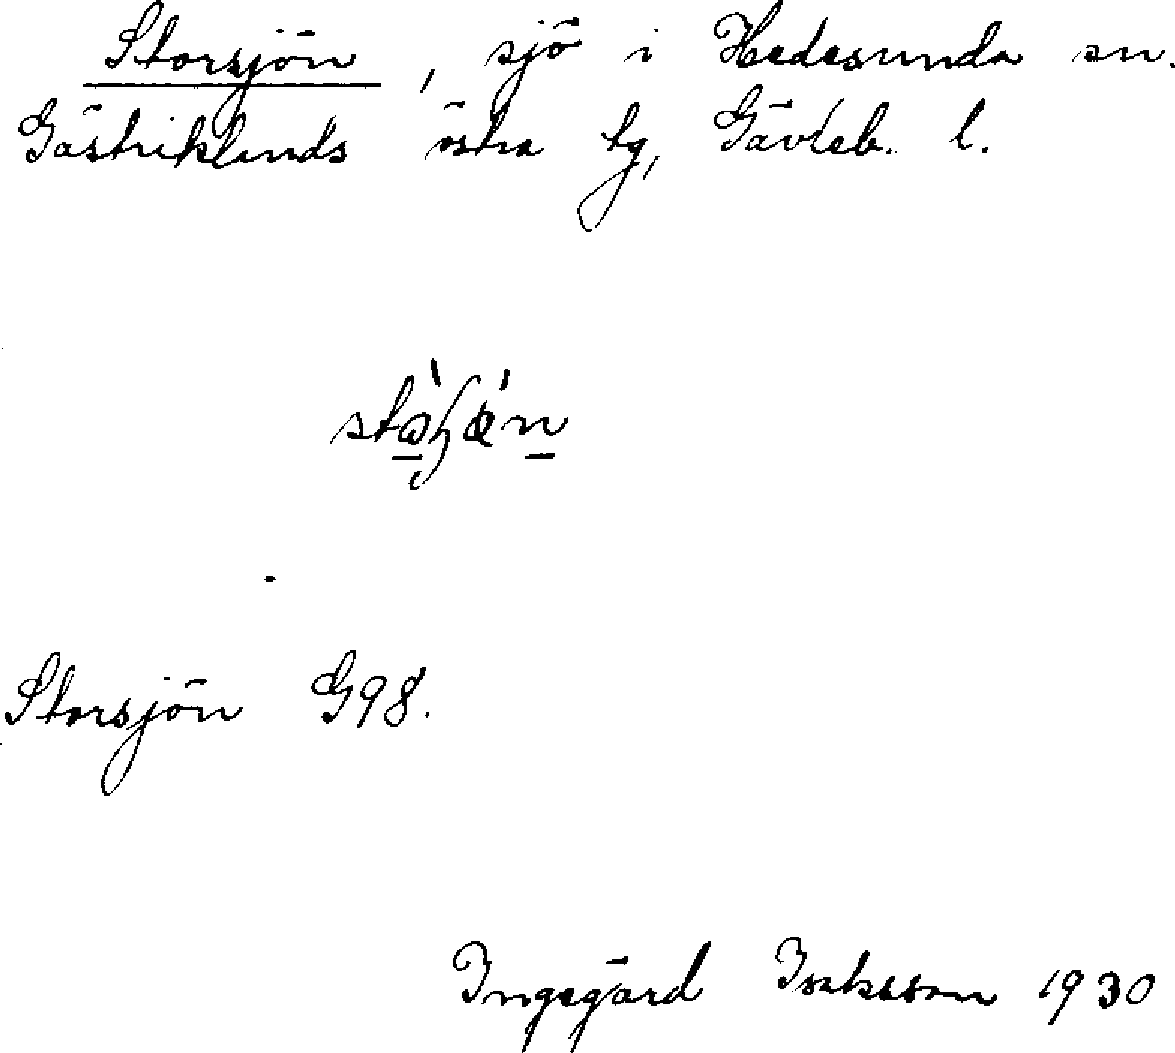 Storsjön, sjö i Hedesunda sn.
Gästriklands östra tg, Gävleb. l.
Storsjön G98.
Ingegärd Isaksson 1930